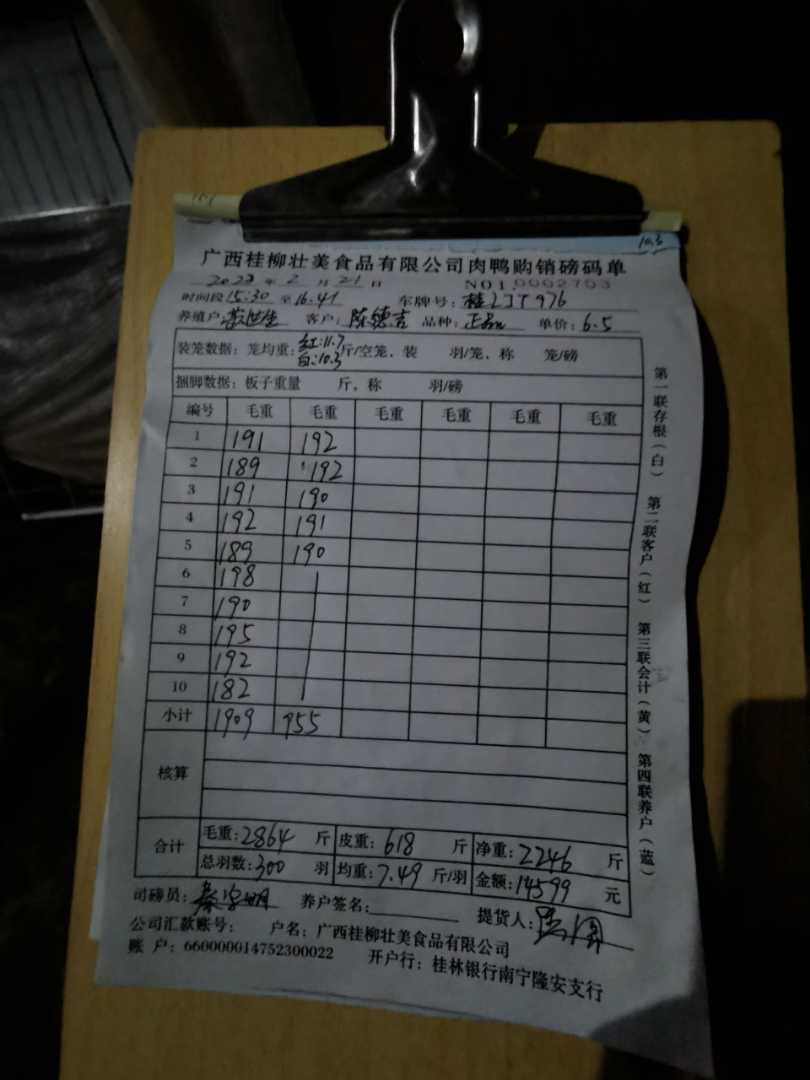 10.3
广西桂柳壮美食品有限公司肉鸭购销磅码单
2023 年 2 月 21 日 NO10002703
时间段15:30 至16:41 车牌号:桂
养殖户 客户:陈德吉 品种:正品 单价:6.5
装笼数据:笼均重:红:11.7 白:10.3 斤/空笼、装 羽/笼、称 笼/磅
捆脚数据:板子重量 斤,称 羽/磅
编号 毛重 毛重 毛重 毛重 毛重 毛重
1 191 192
2 189 192
3 191 190
4 192 191
5 189 190
6 198
7 190
8 195
9 192
10 182
小计 1909 955
核算
合计 毛重:2864 斤 皮重:618 斤 净重:2246 斤
总羽数:300 羽 均重:7.49 斤/羽 金额:14599 元
司磅员: 养户签名: 提货人:
公司汇款账号: 户名:广西桂柳壮美食品有限公司
账 户:660000014752300022 开户行:桂林银行南宁隆安支行
第一联存根(白) 第二联客户(红) 第三联会计(黄) 第四联养户(蓝)